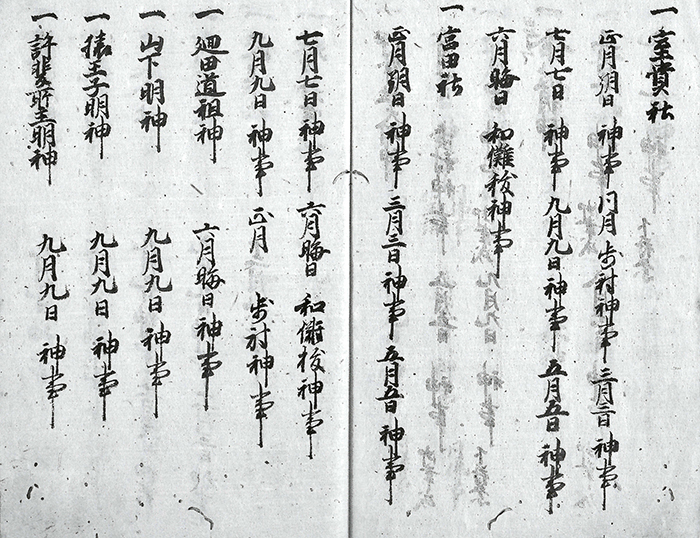 一 室貴社
正月朔日 神事 同月歩射神事 三月三日 神事
七月七日 神事 九月九日神事 五月五日 神事
六月晦日 和儺祓神事
一 宮田社
正月朔日 神事 三月三日 神事 五月五日 神事
七月七日 神事 六月晦日 和儺祓神事
九月九日 神事 正月 歩射神事
一 廻田道祖神 六月晦日 神事
一 山下明神 九月九日 神事
一 猿王子明神 九月九日 神事
一 許斐所主明神 九月九日 神事